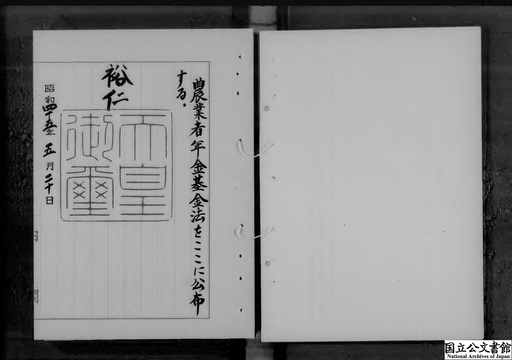 農業者年金基金法をここに公布
する。
裕仁
天皇
御璽
昭和四十五年五月二十日
内閣
国立公文書館
National Archives of Japan